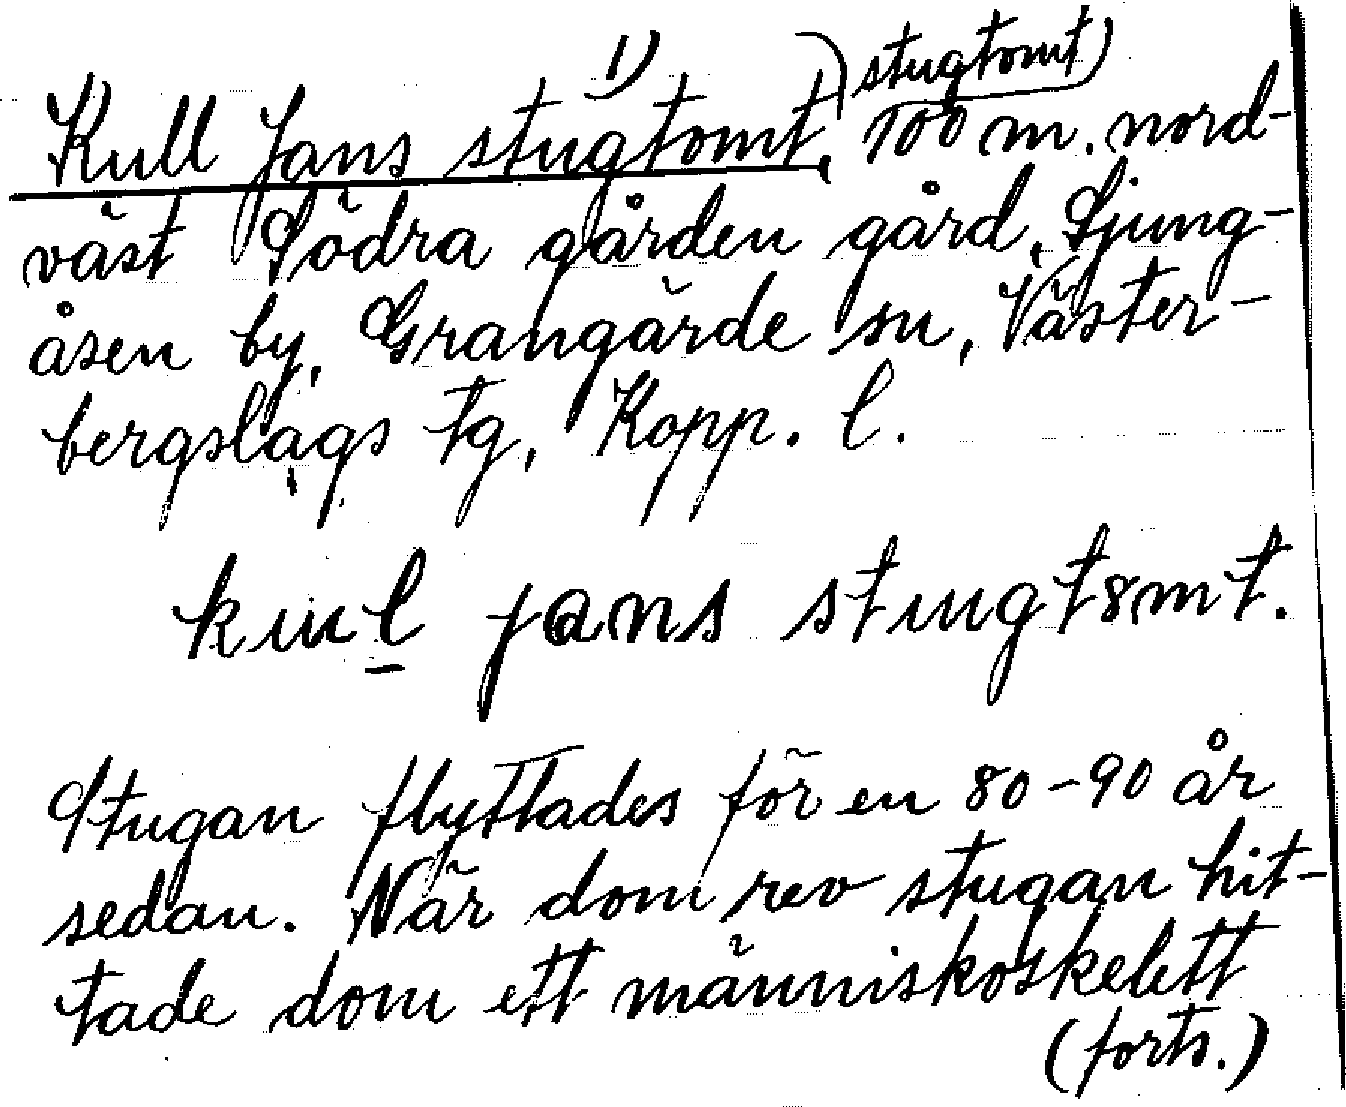 Kull Jans stugtomt, 1) ) stugtomt) 100 m. nord-
väst Södra gården gård, Ljung-
åsen by, Grangärde sn, Väster-
bergslags tg, Kopp. l.
kul jans stugt8mt.
Stugan flyttades för en 80-90 år
sedan. När dom rev stugan hit-
tade dom ett människoskelett
(forts.)